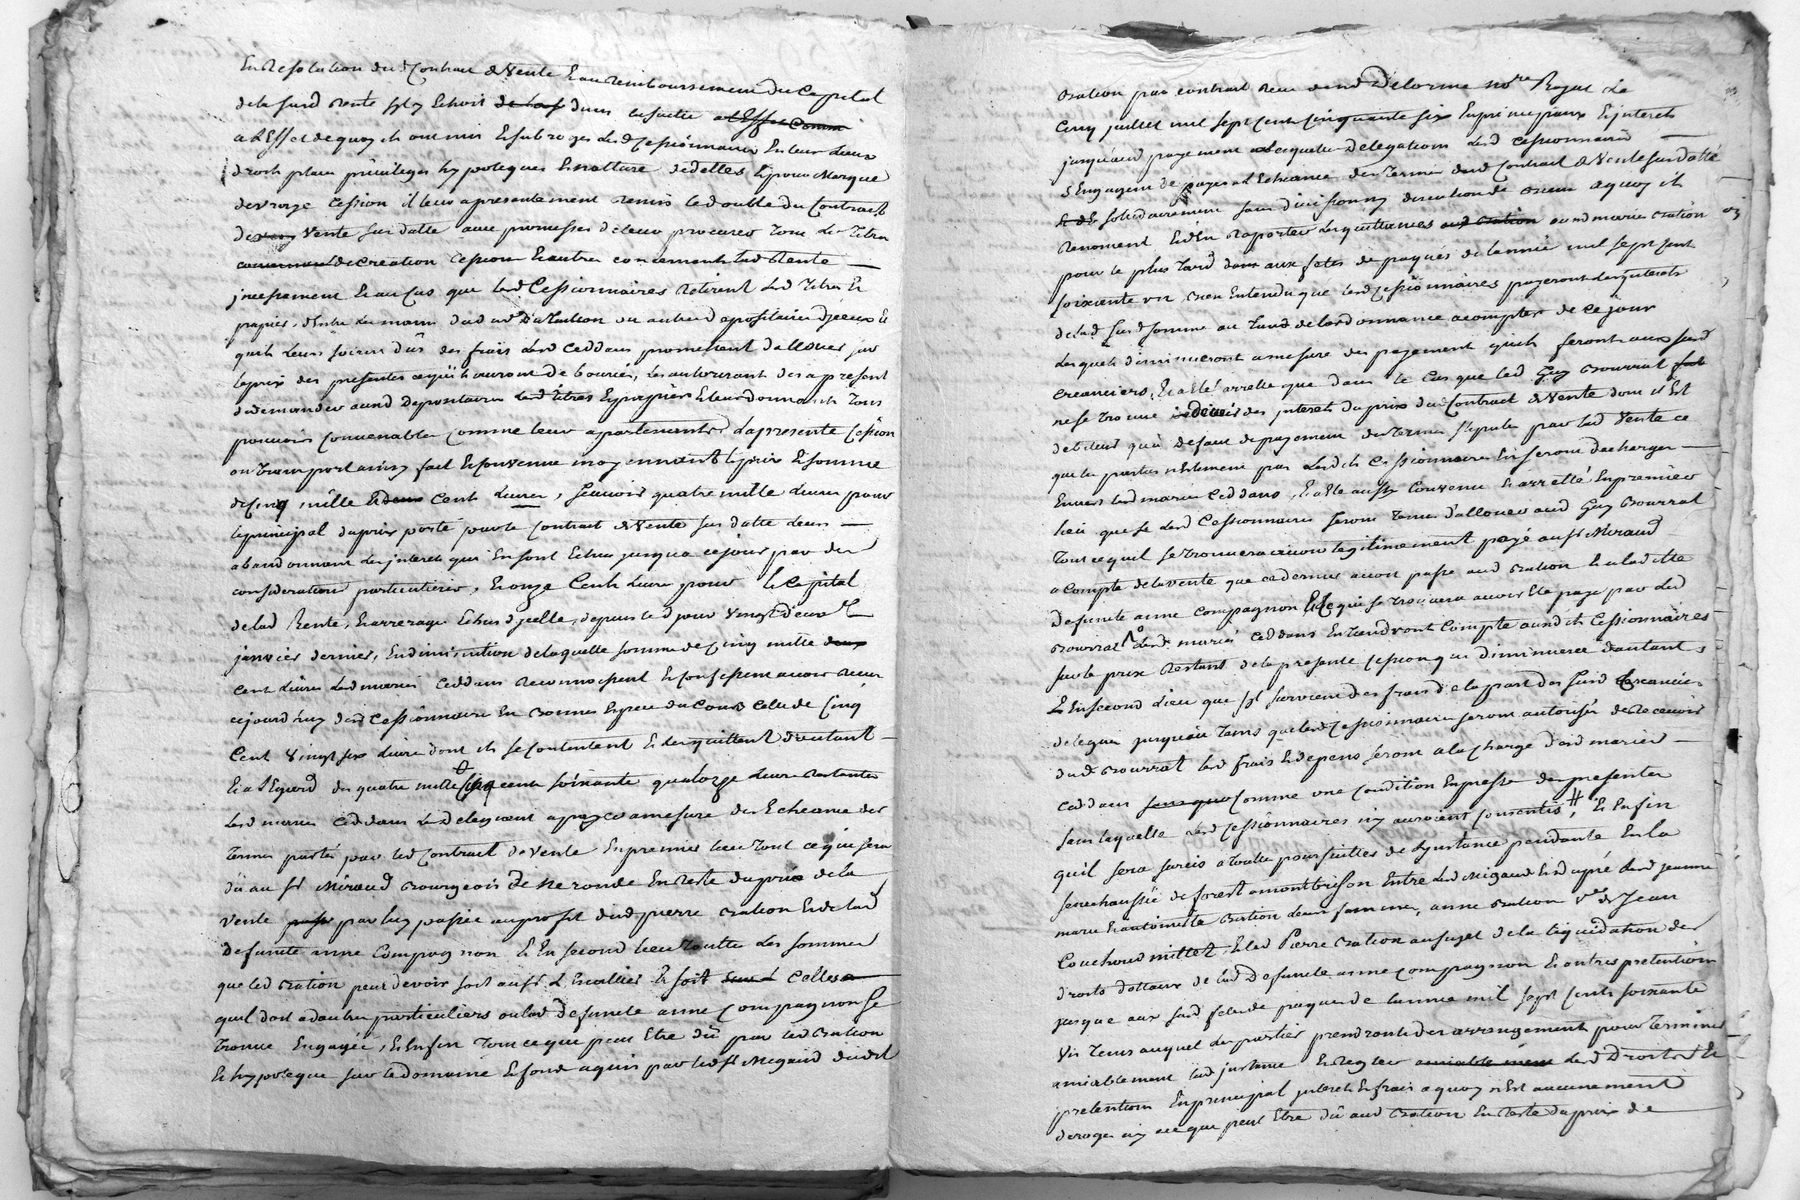 En Resolution dud Contrat de Vente et au Remboursement du Capital
de la susd Rente sy Echoit dans la suitte
a l'Effet de quoy ils ont mis et subroges lesd Cessionnaires En leur Lieux
droits places privileges hypoteques et natture dicelles et pour Marque
de vraye Cession il leur a presentement Remis le double du Contract
de Vente susdatte avec promesses de leur procurer tous les Titres
de creation Cession et autres concernents lad Rente
incessament et au cas que lesd Cessionnaires Retirent lesd Titres et
papiers d'Entre les mains dud ou autres depositaires d'iceux et
quils leurs soient dûs des frais lesd Ceddans promettent d'allouer sur
le prix des presentes ce qu'ils auront de boursés, les authorisant des a present
de demander aud Depositaires lesd titres et papiers et leur donnants tous
pouvoirs convenables comme leurs appartenants la presente Cession
ou Transport ainsy fait et convenue moyennant le prix et somme
de Cinq mille cent Livres, scavoir quatre mille Livres pour
le principal du prix porté par le Contrat de Vente sus datte Leurs
abandonnant les interets qui En sont Echus jusqua ce jour par des
considerations particulieres, et onze Cents Livres pour le Capital
de lad Rente, et arrerages Echus d'icelle, depuis led jour Vingt deux
janvier dernier, En diminution de laquelle somme de Cinq mille
Cent Livres lesd mariés Ceddans Reconnoissent et confessent avoir Receu
ce jourd'huy desd Cessionnaires En bonnes Especes du Cours Celle de Cinq
Cent Vingt six Livres dont ils se contentent et les quittent d'autant
Et a l'Egard des quatre mille Cinq cents soixante quatorze Livres Restantes
Lesd mariés Ceddans les deleguent a payer a mesure des Echeance des
Termes portés par led Contract de Vente En premier lieu tout ce qui sera
dû au sr Miraud Bourgeois de Neronde En Reste du prix de la
Vente par luy passée au profit dud pierre Oration et de lad
Defunte anne Compagnon et En second lieu toutes les sommes
que led Oration peut devoir soit au sr L'Escallier et soit Celles
quil doit a dautres particuliers ou lad defuncte anne Compagnon se
Trouve Engagée, et Enfin tout ce qui peut Etre dû par led Oration
et hypoteque sur le domaine et fond aquis par led sr
Oration par contrat Receu dud Delorme no.re Royal le
Cinq juillet mil sept cents Cinquante six En principaux et interets
jusqu'aud payement Lesquelles Delegations lesd Cessionnaires
s'Engagent de payer a l'Echeance des Termes dud Contrat de Vente susdatté
solidairement sans division ny discution de biens a quoy ils
Renoncent et d'En Raporter les quittances auxd mariés Oration
pour le plus tard dans aux festes de paques de l'année mil sept cent
soixante un bien Entendu que lesd Cessionnaires payeront les interets
de lad susd somme au taux de l'ordonnance a compter de ce jour
Lesquels diminueront a mesure des payement quils feront aux susd
creanciers, Et a Eté arretté que dans le Cas que led Guy Bourrat
ne se trouve des interets du prix dud Contract de Vente dont il Est
debiteur qu'a defaut de payement des termes stipulés par lad Vente ce
que les parties n'estiment pas Lesdits Cessionnaires En seront decharges
Envers lesd mariés Ceddans, Et a Eté aussy Convenu et arretté En premier
lieu que se Lesd Cessionnaires seront Tenus d'allouer aud Guy Bourrat
tout ce quil se trouvera avoir legitimement payé au sr Miraud
a compte de la Vente que ce dernier avoit passé aud Oration et a lad
Defunte anne Compagnon et ce qui se trouvera avoir Eté payé par led
Bourrat lesd mariés Ceddans En tiendront Compte auxdits Cessionnaires
sur le prix Restant de la presente Cession qui diminuera d'autant,
et En second Lieu que s'il survient des frais de la part des susd Creanciers
delegués jusqu'au tems que lesd Cessionnaires seront autorisés de Recevoir
dud Bourrat lesd frais et depens seront a la charge desd mariés
Ceddans comme une Condition Expresse des presentes
sans laquelle Lesd Cessionnaires n'y auroient consentis #, et Enfin
quil sera surcis a toutes poursuittes de l'Instance pendante En la
senechaussée de forest a montbrison Entre lesd
mariés et antoinette Oration leurs femmes, anne Oration v.ve de Jean
Couchoud millet, et led Pierre Oration au sujet de la liquidation des
droits dottaux de lad Defuncte anne Compagnon et autres pretentions
jusque aux susd feste de paques de l'annee mil sept cents soixante
un tems auquel les parties prendront des arrangement pour terminer
amiablement lad instance et Regler lesd Droits et
pretentions En principal interets et frais a quoy n'Est aucunement
deroge ny a ce que peut Etre dû aud Oration En Reste du prix de